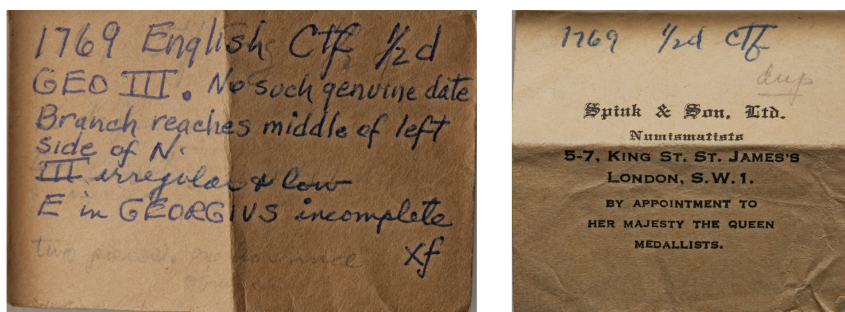 1769 English Ctf 1/2 d
GEO III. No such genuine date
Branch reaches middle of left
side of N.
III irregular & low
E in GEORGIUS incomplete
xf
two
1769 1/2d Ctf
dup
Spink & Son, Ltd.
Numismatists
5-7, KING ST. ST. JAMES'S
LONDON, S.W.1.
BY APPOINTMENT TO
HER MAJESTY THE QUEEN
MEDALLISTS.